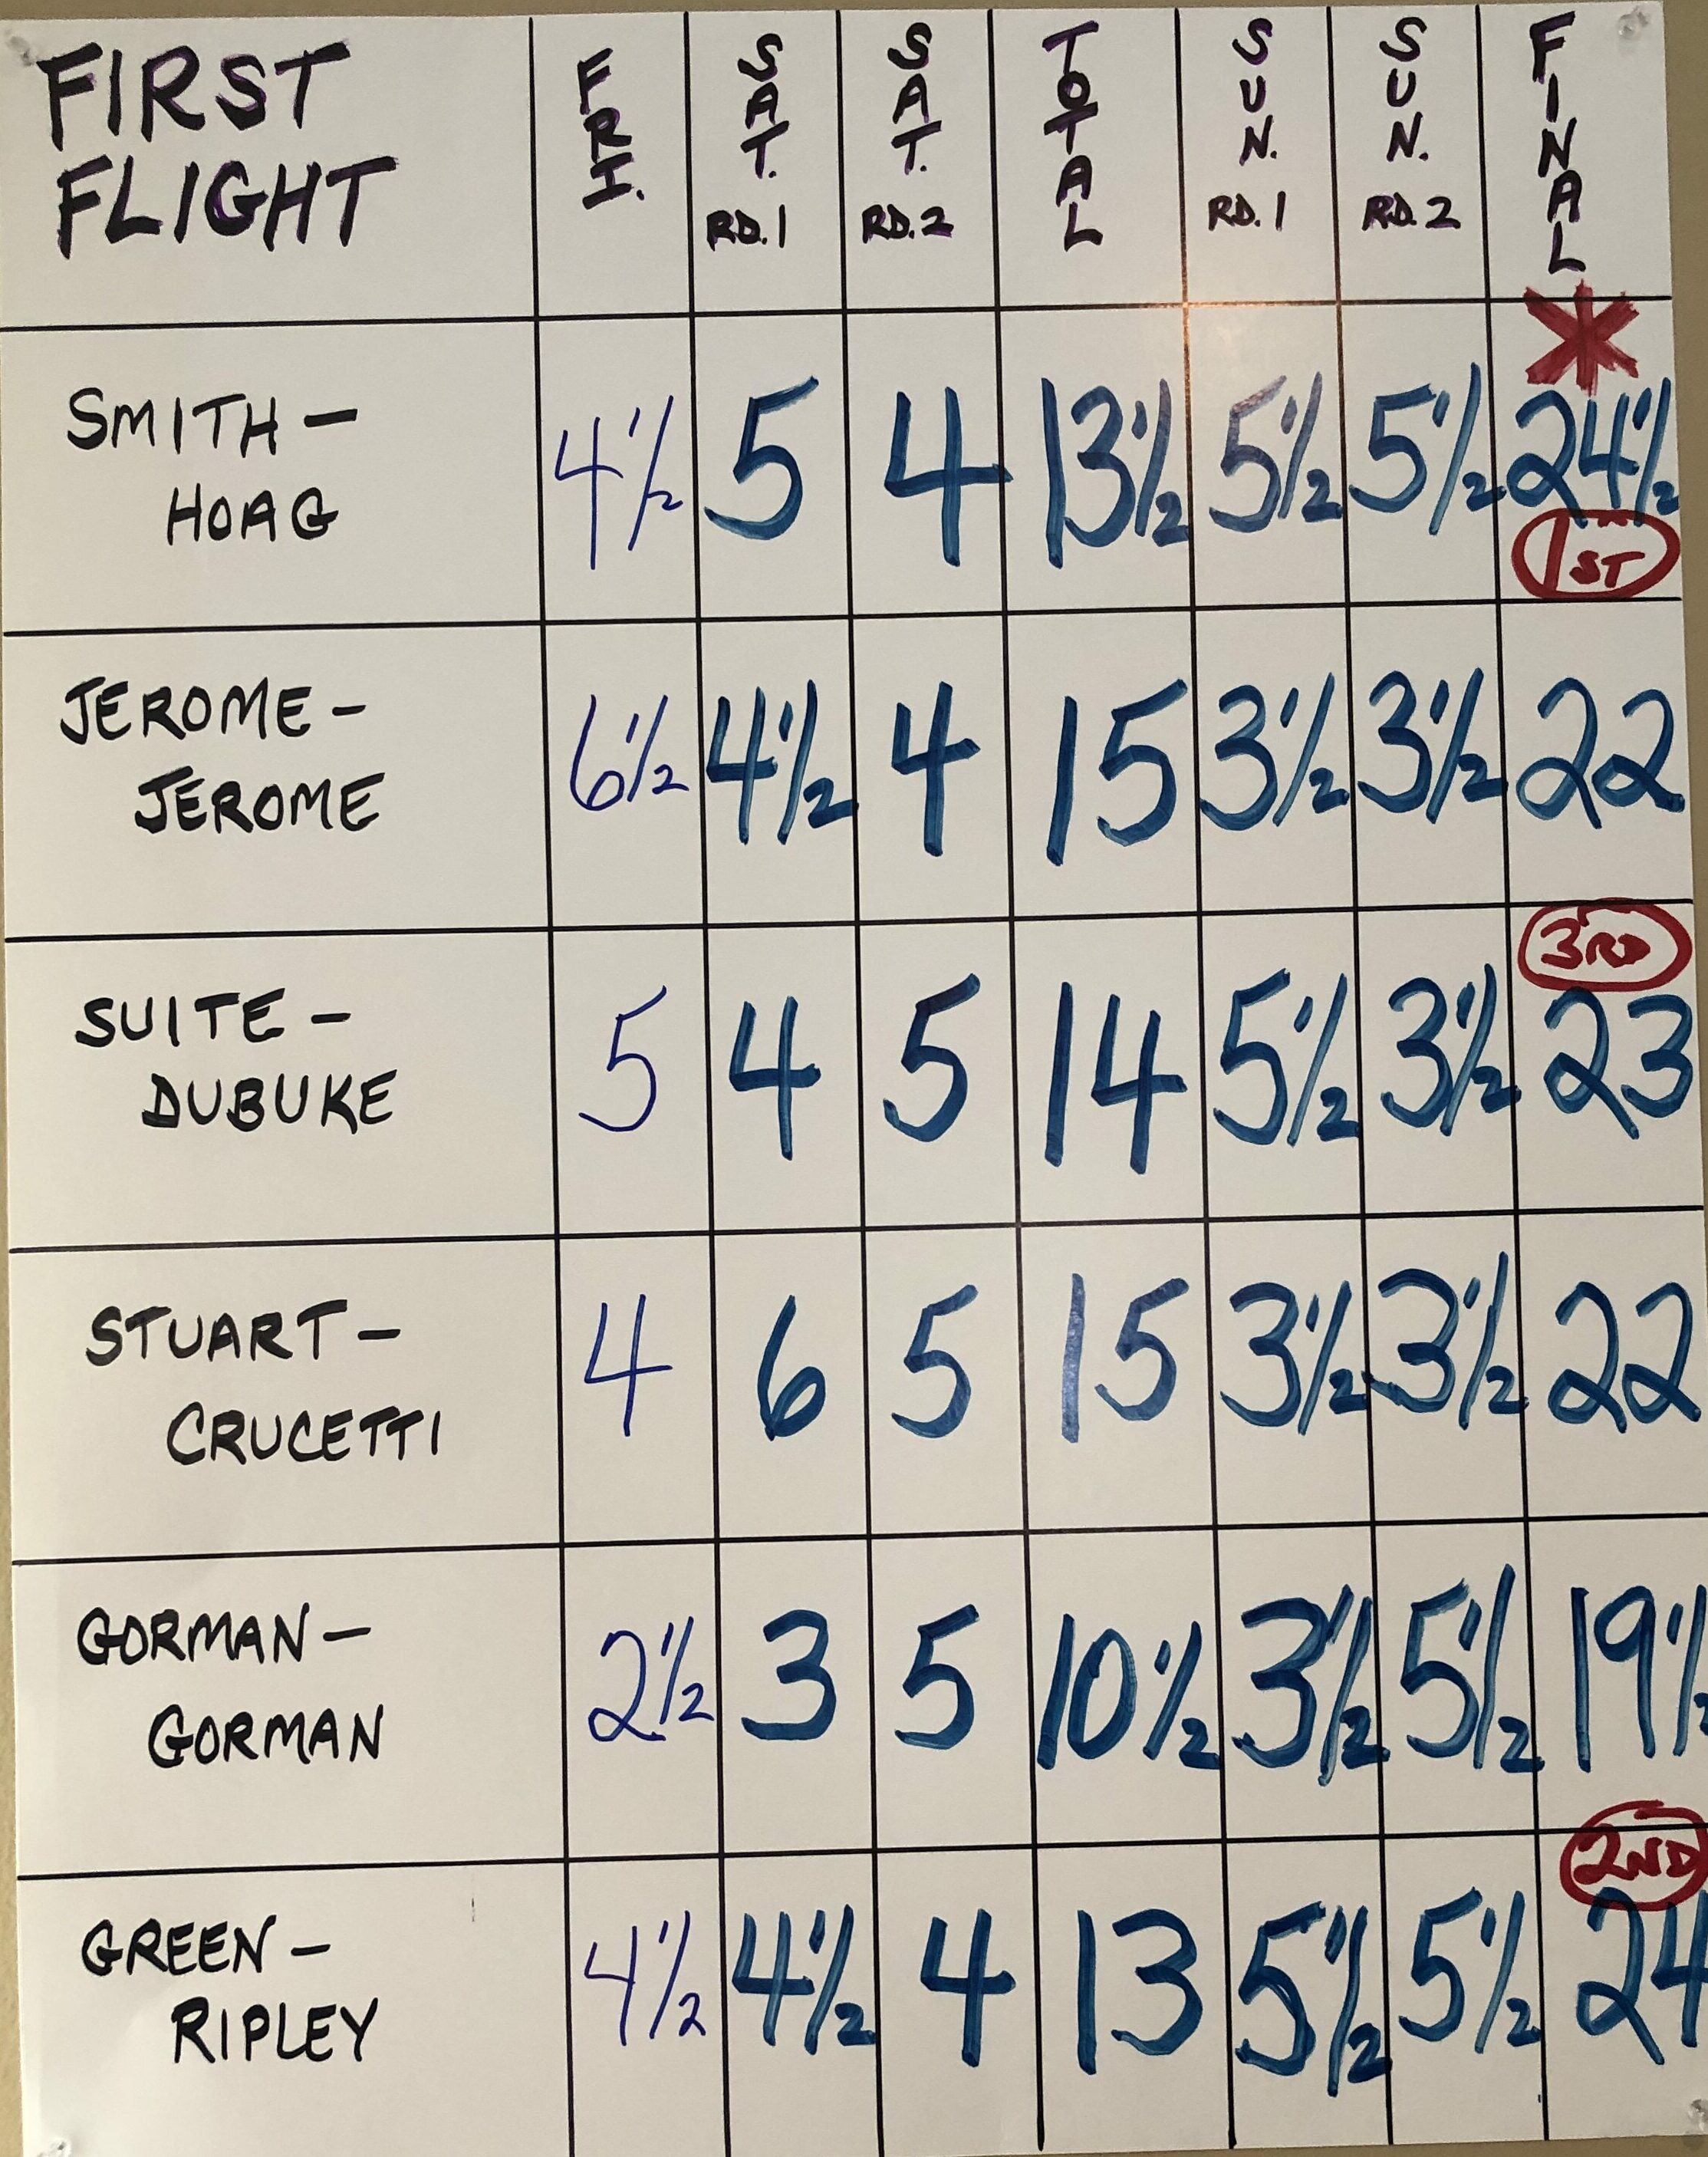 FIRST FLIGHT FRI. SAT. RD.1 SAT. RD.2 TOTAL SUN. RD.1 SUN. RD.2 FINAL
*
SMITH – HOAG 4 1/2 5 4 13 1/2 5 1/2 5 1/2 24 1/2
1ST
JEROME – JEROME 6 1/2 4 1/2 4 15 3 1/2 3 1/2 22
3RD
SUITE – DUBUKE 5 4 5 14 5 1/2 3 1/2 23
STUART – CRUCETTI 4 6 5 15 3 1/2 3 1/2 22
GORMAN – GORMAN 2 1/2 3 5 10 1/2 3 1/2 5 1/2 19 1/2
2ND
GREEN – RIPLEY 4 1/2 4 1/2 4 13 5 1/2 5 1/2 24